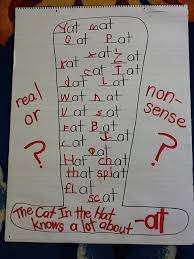 Yat mat
Gat Pat
rat Zat
kat Iat
dat lat
Wat nat
vat sat
Fat Bat
Jat cat
eat
Hat chat
that splat
flat
scat
real
or
?
non-
sense
?
The Cat In the Hat
knows a lot about -at